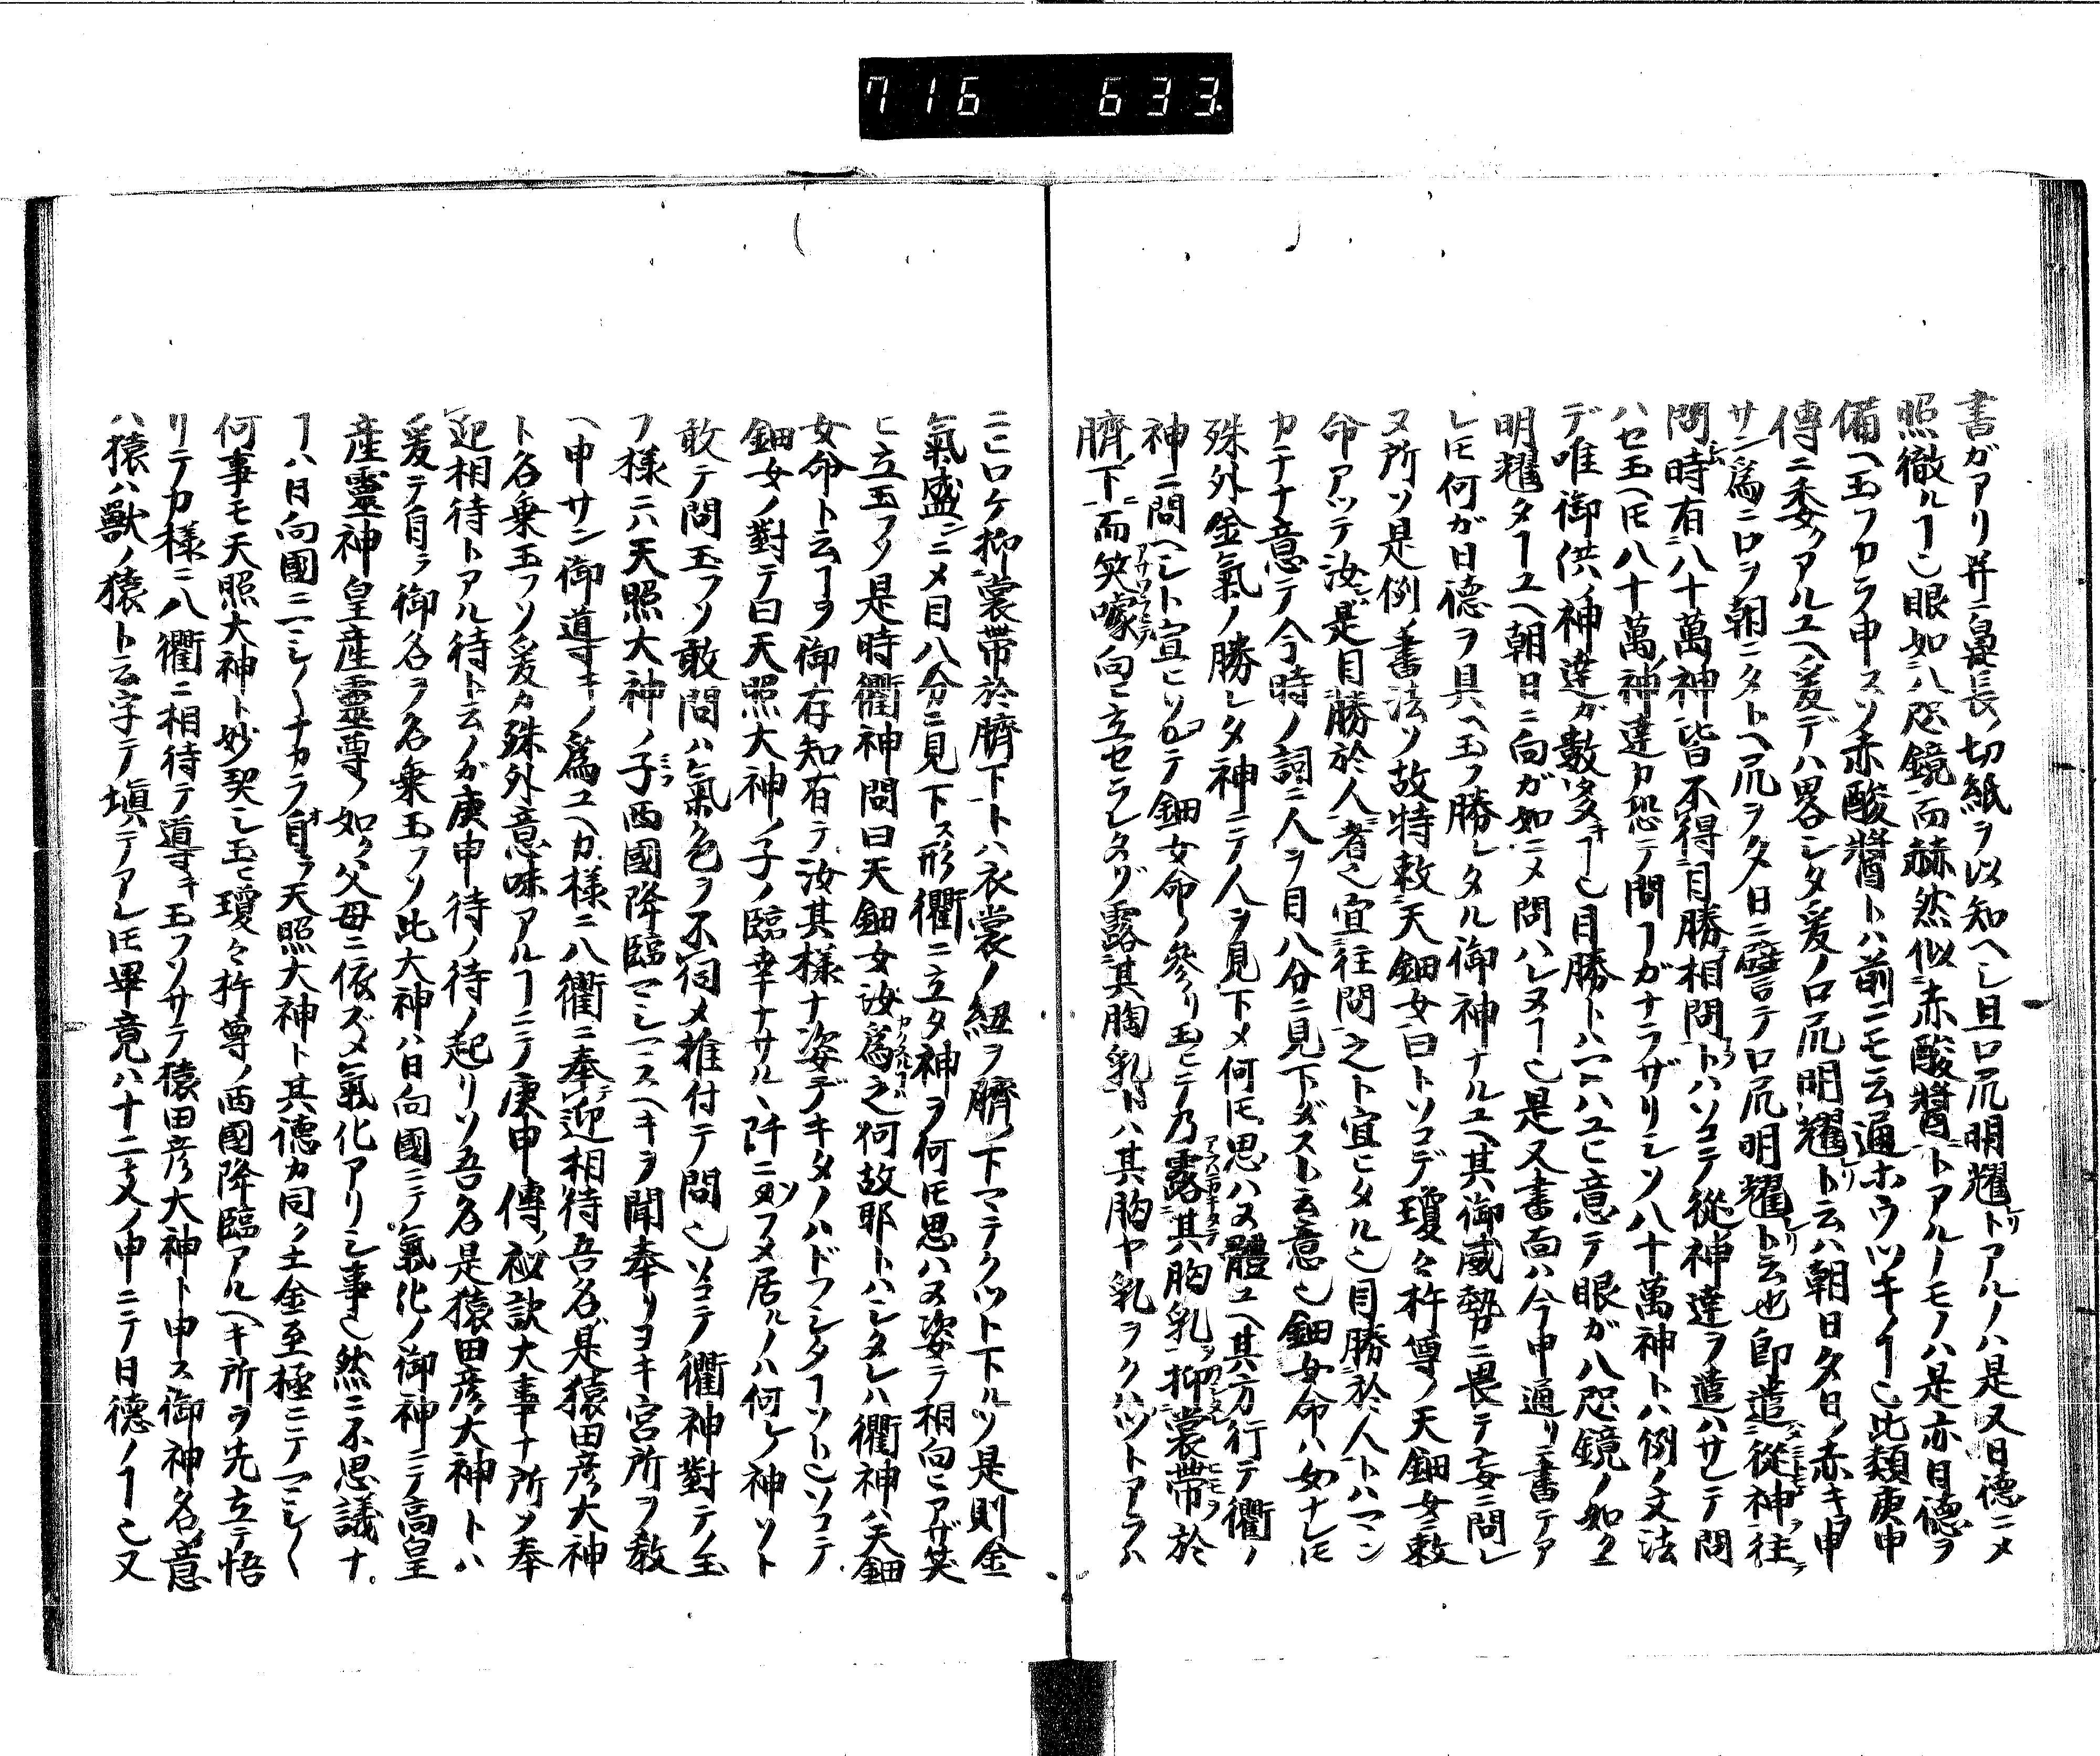 716 633
書ガアリ并ニ鼻長ノ切紙ヲ以知ヘシ且口尻明耀トアルノハ是又日徳ニメ
照徹ルヿ也眼如八咫鏡而赩然似赤酸醬トアルノモノハ是亦日徳ヲ
備ヘ玉フカラ申スソ赤酸醬トハ前ニモ云通ホウツキノヿ也此類庚申
傳ニ委クアルユヘ爰デハ畧シタ爰ノ口尻明耀ト云ハ朝日夕日ノ赤キ申
サン爲ニ口ヲ朝ニタトヘ尻ヲ夕日ニ譬テ口尻明耀ト云也即遣從神往
問時有八十萬神皆不得目勝相問トハソコテ從神達ヲ遣ハサレテ問
ハセ玉ヘ𪜈八十萬神達カ恐テ問ヿガナラザリシソ八十萬神トハ例ノ文法
デ唯御供ノ神達ガ數多キヿ也目勝トハマハユヒ意テ眼ガ八咫鏡ノ如ク
明耀タヿユヘ朝日ニ向ガ如ニメ問ハレヌヿ也是又書面ハ今申通リニ書テア
レ𪜈何ガ日德ヲ具ヘ玉フ勝レタル御神ナルユヘ其御威勢ニ畏テ妄ニ問レ
ヌ所ソ是例ノ書法ソ故特敕天鈿女曰トソコデ瓊々杵尊ノ天鈿女ニ敕
命アツテ汝是目勝於人者也宜往問之ト宣ヒタル也目勝於人トハマン
カチナ意テ今時ノ詞ニ人ヲ目八分ニ見下ダスト云意也鈿女命ハ女ナレ𪜈
殊外金氣ノ勝レタ神ニテ人ヲ見下メ何𪜈思ハヌ體ユヘ其方行テ衢ノ
神ニ問ヘシト宣ヒソ乄テ鈿女命ノ參リ玉ヒテ乃露其胸乳抑裳帶於
臍下而笑噱向テ立セラレタソ露其胸乳トハ其胸ヤ乳ヲクハツトアラハ
ニヒロケ抑裳帶於臍下トハ衣裳ノ紐ヲ臍ノ下マテクツト下ルソ是則金
氣盛ニメ目八分ニ見下ス形衢ニ立タ神ヲ何𪜈思ハヌ姿テ相向ヒアザ笑
ヒ立玉フソ是時衢神問曰天鈿女汝爲之何故耶トハシタレハ衢神ハ天鈿
女命ト云ヿヲ御存知有テ汝其樣ナ姿デキタノハドフシタヿソト也ソコテ
鈿女ノ對テ曰天照大神ノ子ノ臨幸ナサルヽ阡ニ向フメ居ルノハ何レノ神ソト
敢テ問玉フソ敢問ハ氣色ヲ不伺メ推付テ問也ソコテ衢神對テノ玉
フ樣ニハ天照大神ノ子西國降臨マシマスヘキヲ聞奉リヨキ宮所ヲ敎
ヘ申サン御導キノ爲ユヘカ樣ニ八衢ニ奉迎相待吾名是猿田彦大神
ト名乗玉フソ爰カ殊外意味アルヿニテ庚申傳ノ祕訣大事ナ所ソ奉
迎相待トアル待ト云ノガ庚申待ノ待ノ起リソ吾名是猿田彦大神トハ
爰テ自ラ御名ヲ名乗玉フソ此大神ハ日向國ニテ氣化ノ御神ニテ高皇
産靈神皇産靈尊ノ如ク父母ニ依ズメ氣化アリシ事也然ニ不思議ナ
ヿハ日向國ニマシ〱ナカラ自ラ天照大神ト其徳カ同ク土金至極ニテマシ〱
何事モ天照大神ト妙契シ玉ヒ瓊々杵尊ノ西國降臨アルヘキ所ヲ先立テ悟
リテカ樣ニ八衢ニ相待テ導キ玉フソサテ猿田彦大神ト申ス御神名ノ意
ハ猿ハ獸ノ猿ト云字ニテ塡テアレ𪜈畢竟ハ十二支ノ申ニテ日德ノヿ也又